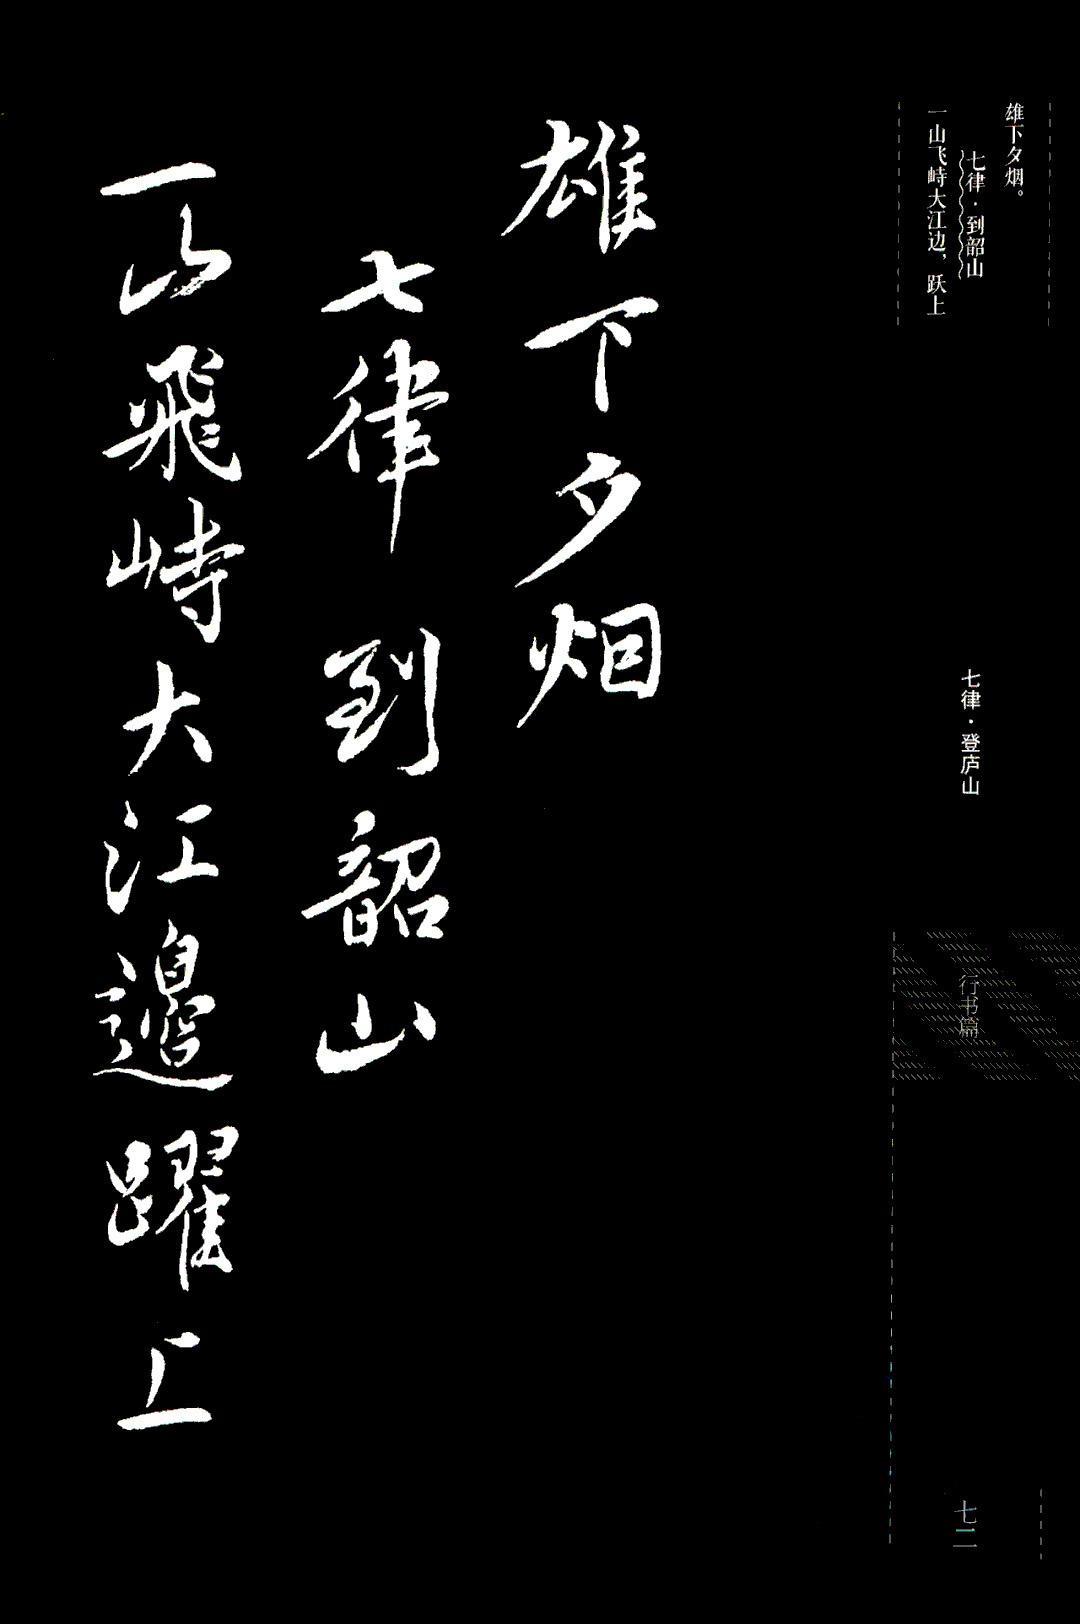 雄下夕烟。
七律·到韶山
一山飞峙大江边，跃上
七律·登庐山
行书篇
七二
雄下夕烟
七律到韶山
一山飛峙大江邊躍上